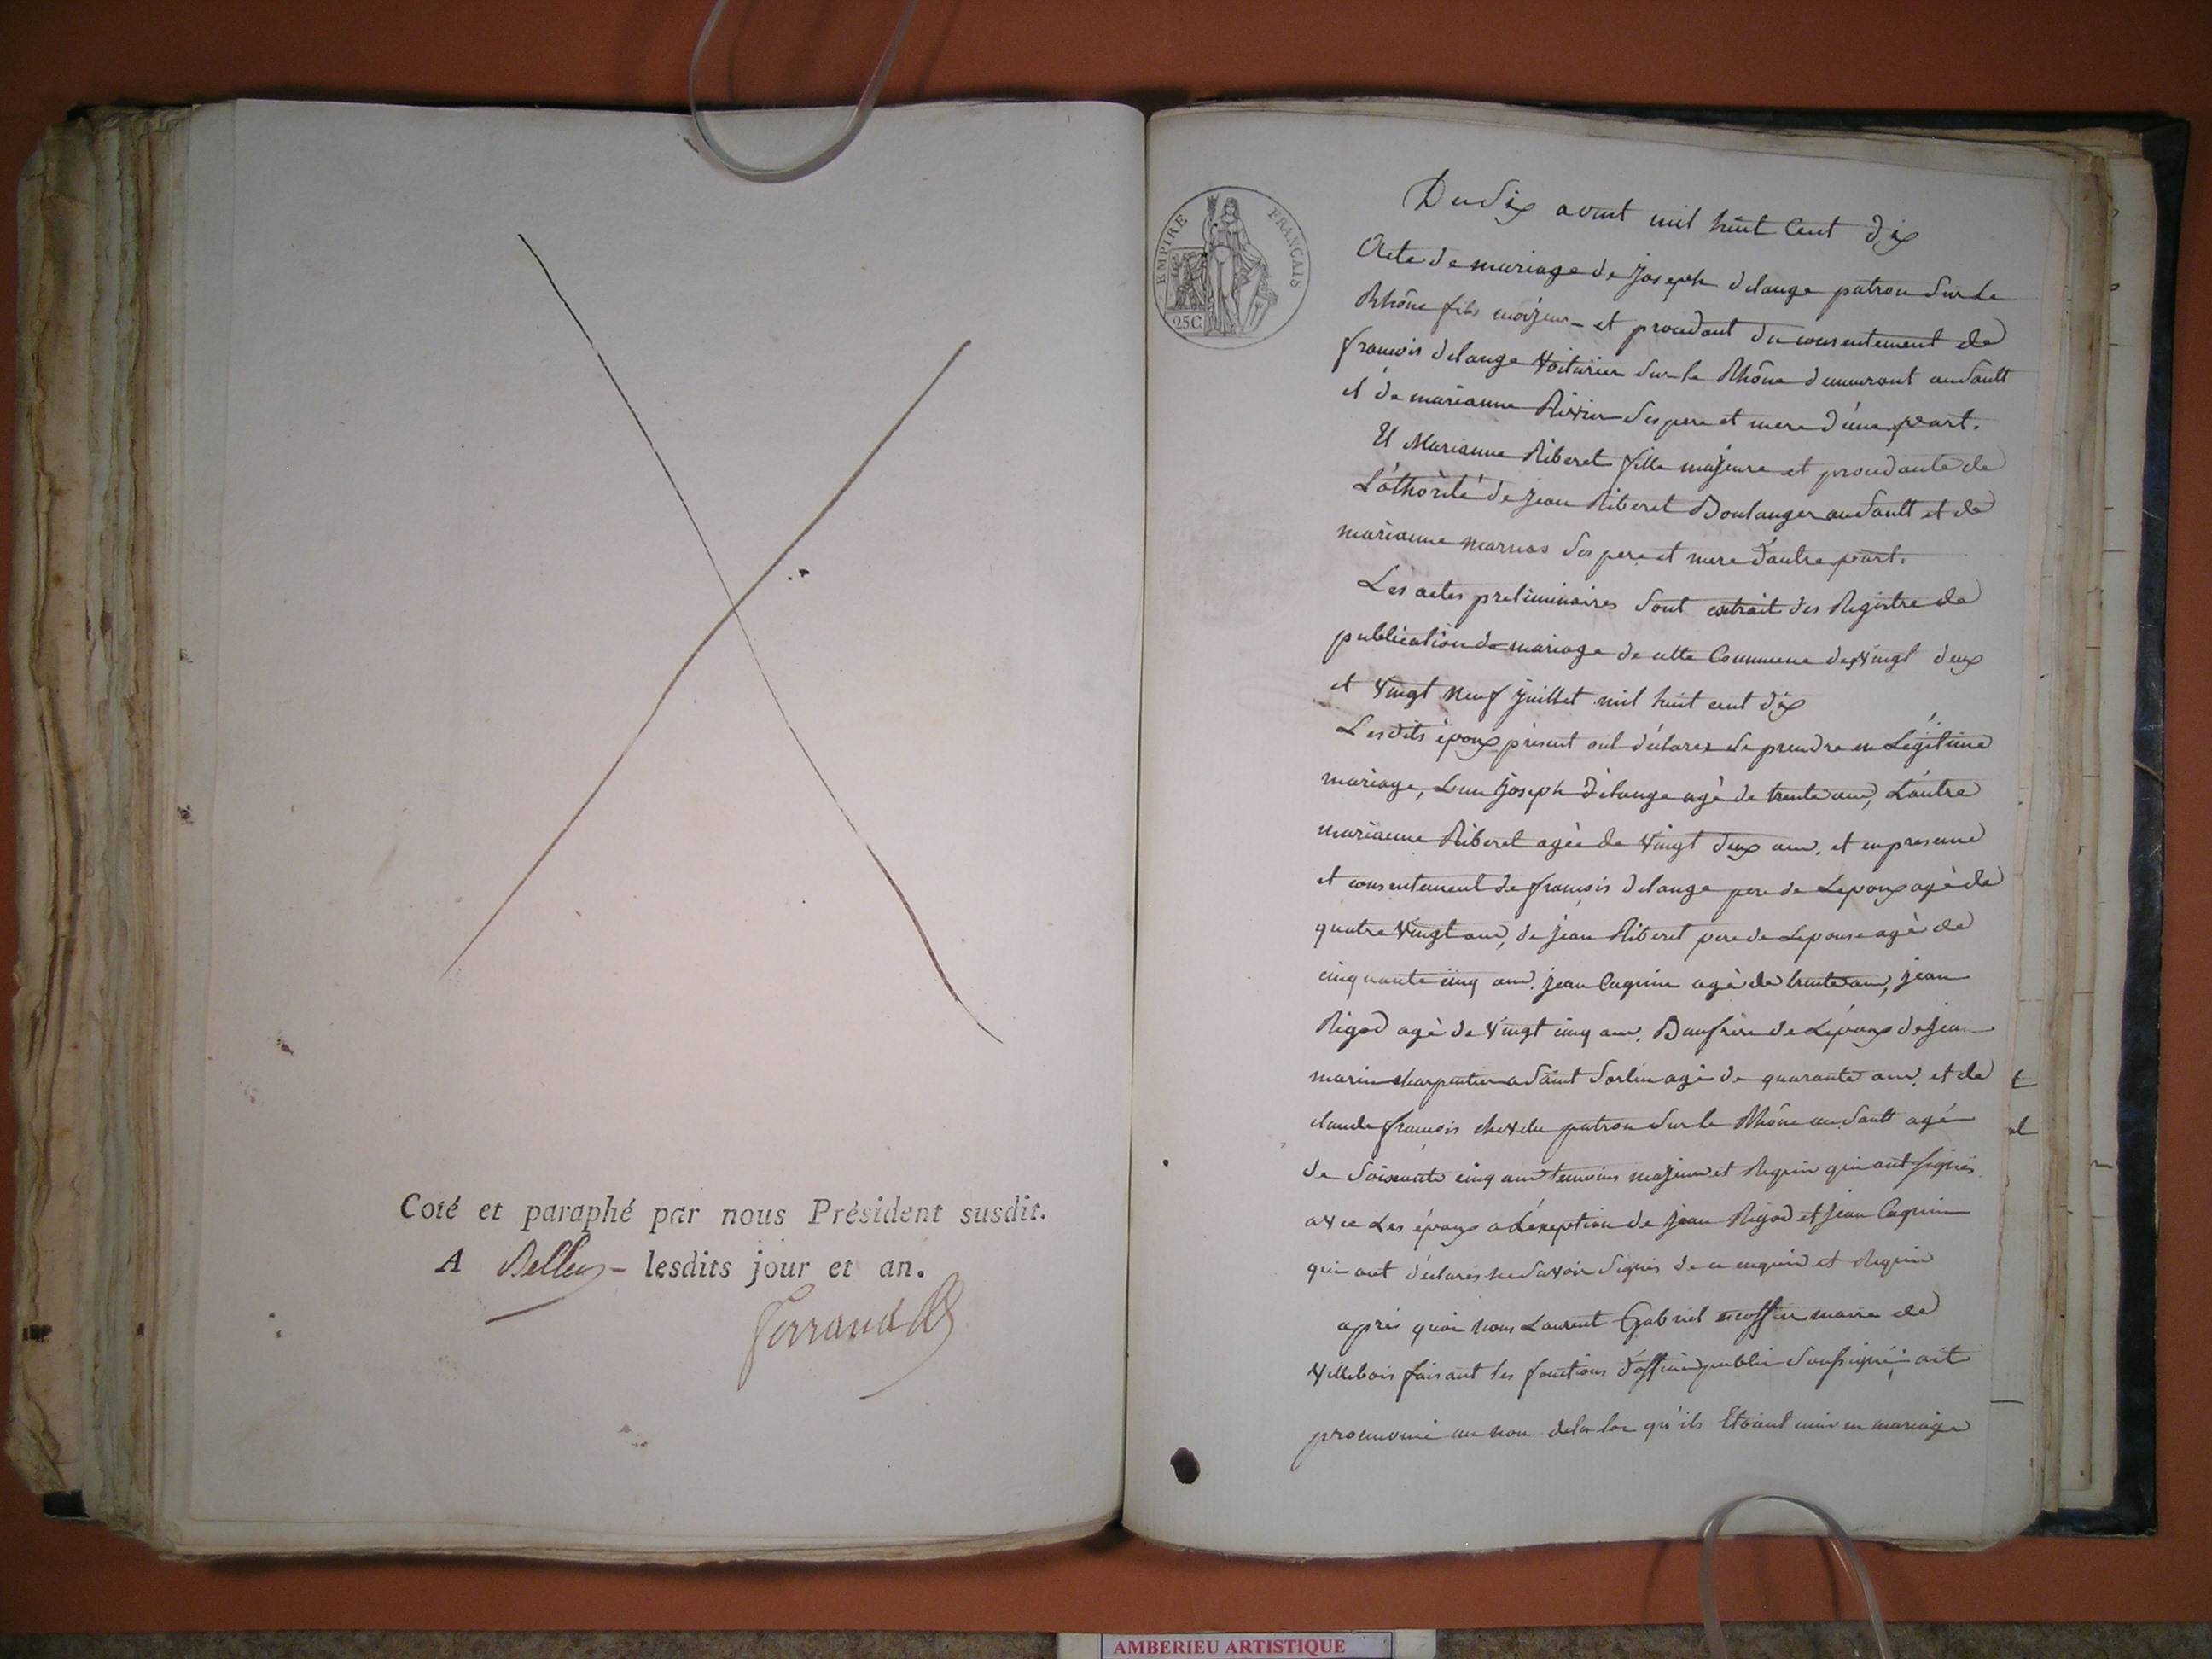 Coté et paraphé par nous Président susdit.
A Belley - lesdits jour et an.
Ferrand
EMPIRE FRANÇAIS
25C
Du dix aout mil huit Cent dix
Acte de mariage de joseph delange patron Sur le
Rhône fils majeur et procedant du consentement de
francois delange Voiturier Sur le Rhône demeurant au Sault
et de marianne Rivier Ses pere et mere d'une part.
Et Marianne Riberet fille majeure et procedante de
L'othorité de jean Riberet Boulanger au Sault et de
marianne marnas Ses pere et mere d'autre part.
Les actes preliminaires Sont extrait des Registre de
publication de mariage de cette Commune des Vingt deux
et Vingt neuf juillet mil huit cent dix
Lesdits époux présent ont déclarez de prendre en Légitime
mariage, L'un joseph délange agé de trente ans, L'autre
marianne Riberet agée de Vingt deux ans. et en presence
et consentement de francois delange pere de Lepoux agé de
quatre Vingt ans, de jean Riberet pere de Lepouse agé de
cinquante cinq ans. jean Caquin agé de trente ans, jean
Rigod agé de Vingt cinq ans. Baufrère de Lépoux de jean
marin charpentier a Saint Sorlin agé de quarante ans. et de
claude francois chevelu patron Sur le Rhône au Sault agé
de Soixante cinq ans temoins majeurs et Requin qui ont signés
avec Les époux a L'exeption de jean Rigod et jean Caquin
qui ont déclarés ne Savoir Signés de ce enquis et Requis
après quoi nous Laurent Gabriel escoffier maire de
Villebois faisant les fonctions d'officier public Soussigné, ait
prononcé au non de la loi qu'ils Etoient unis en mariage
AMBERIEU ARTISTIQUE